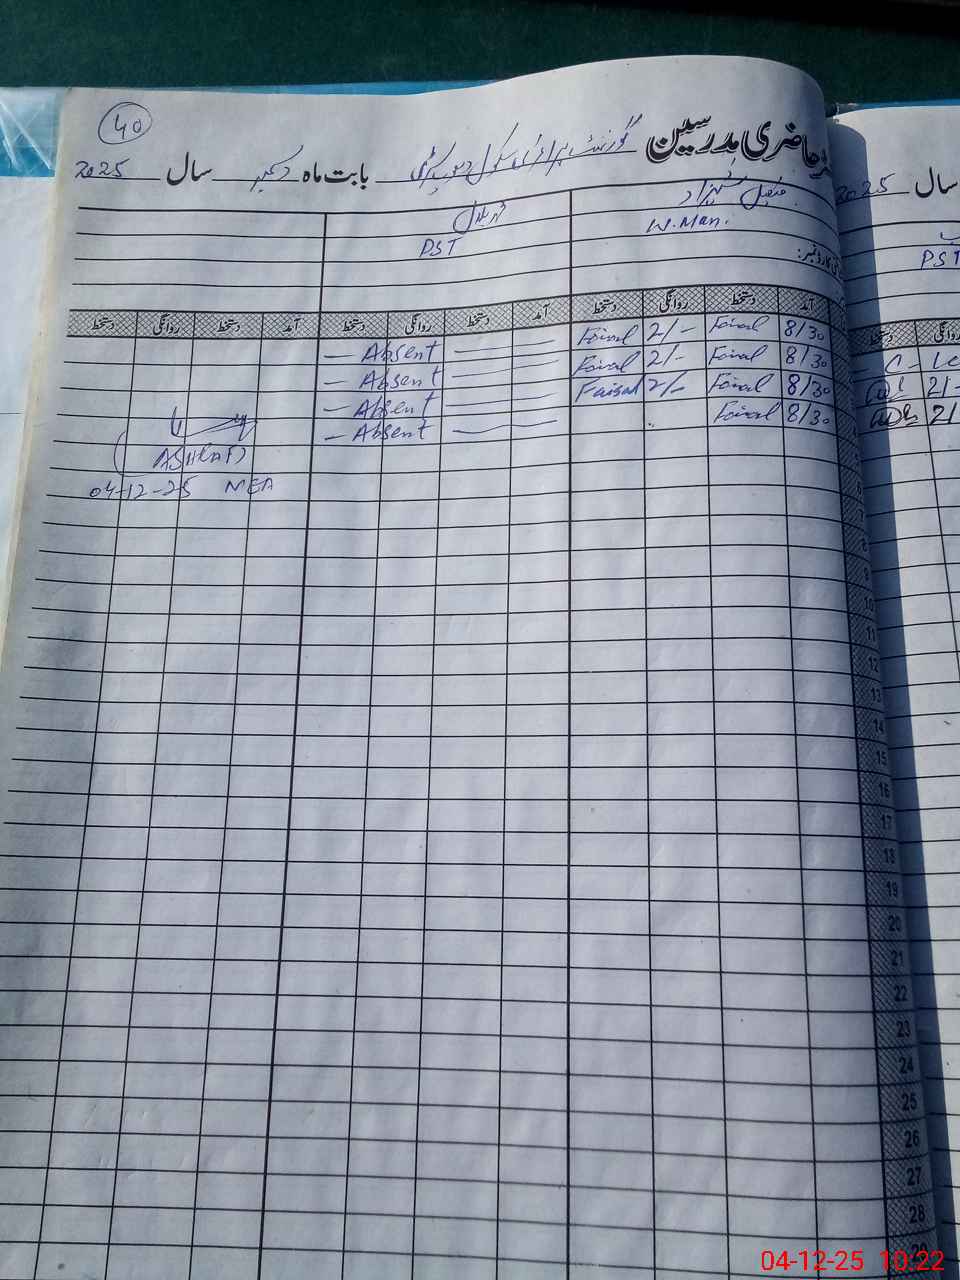 40
حاضری مدرسین گورنمنٹ پرائمری سکول
بابت ماہ دسمبر سال 2025
سال 2025
فیصل شہزاد
W. Man.
PST
PST
کارڈ نمبر:
آمد دستخط روانگی دستخط آمد دستخط روانگی دستخط آمد دستخط روانگی دستخط
روانگی دستخط
8/30 Faisal 2/- Faisal — Absent
8/30 Faisal 2/- Faisal — Absent
8/30 Faisal 2/- Faisal — Absent
8/30 Faisal — Absent
- C -
2/-
2/
04-12-25 MEA
8
9
10
11
12
13
14
15
16
17
18
19
20
21
22
23
24
25
26
27
28
04-12-25 10:22